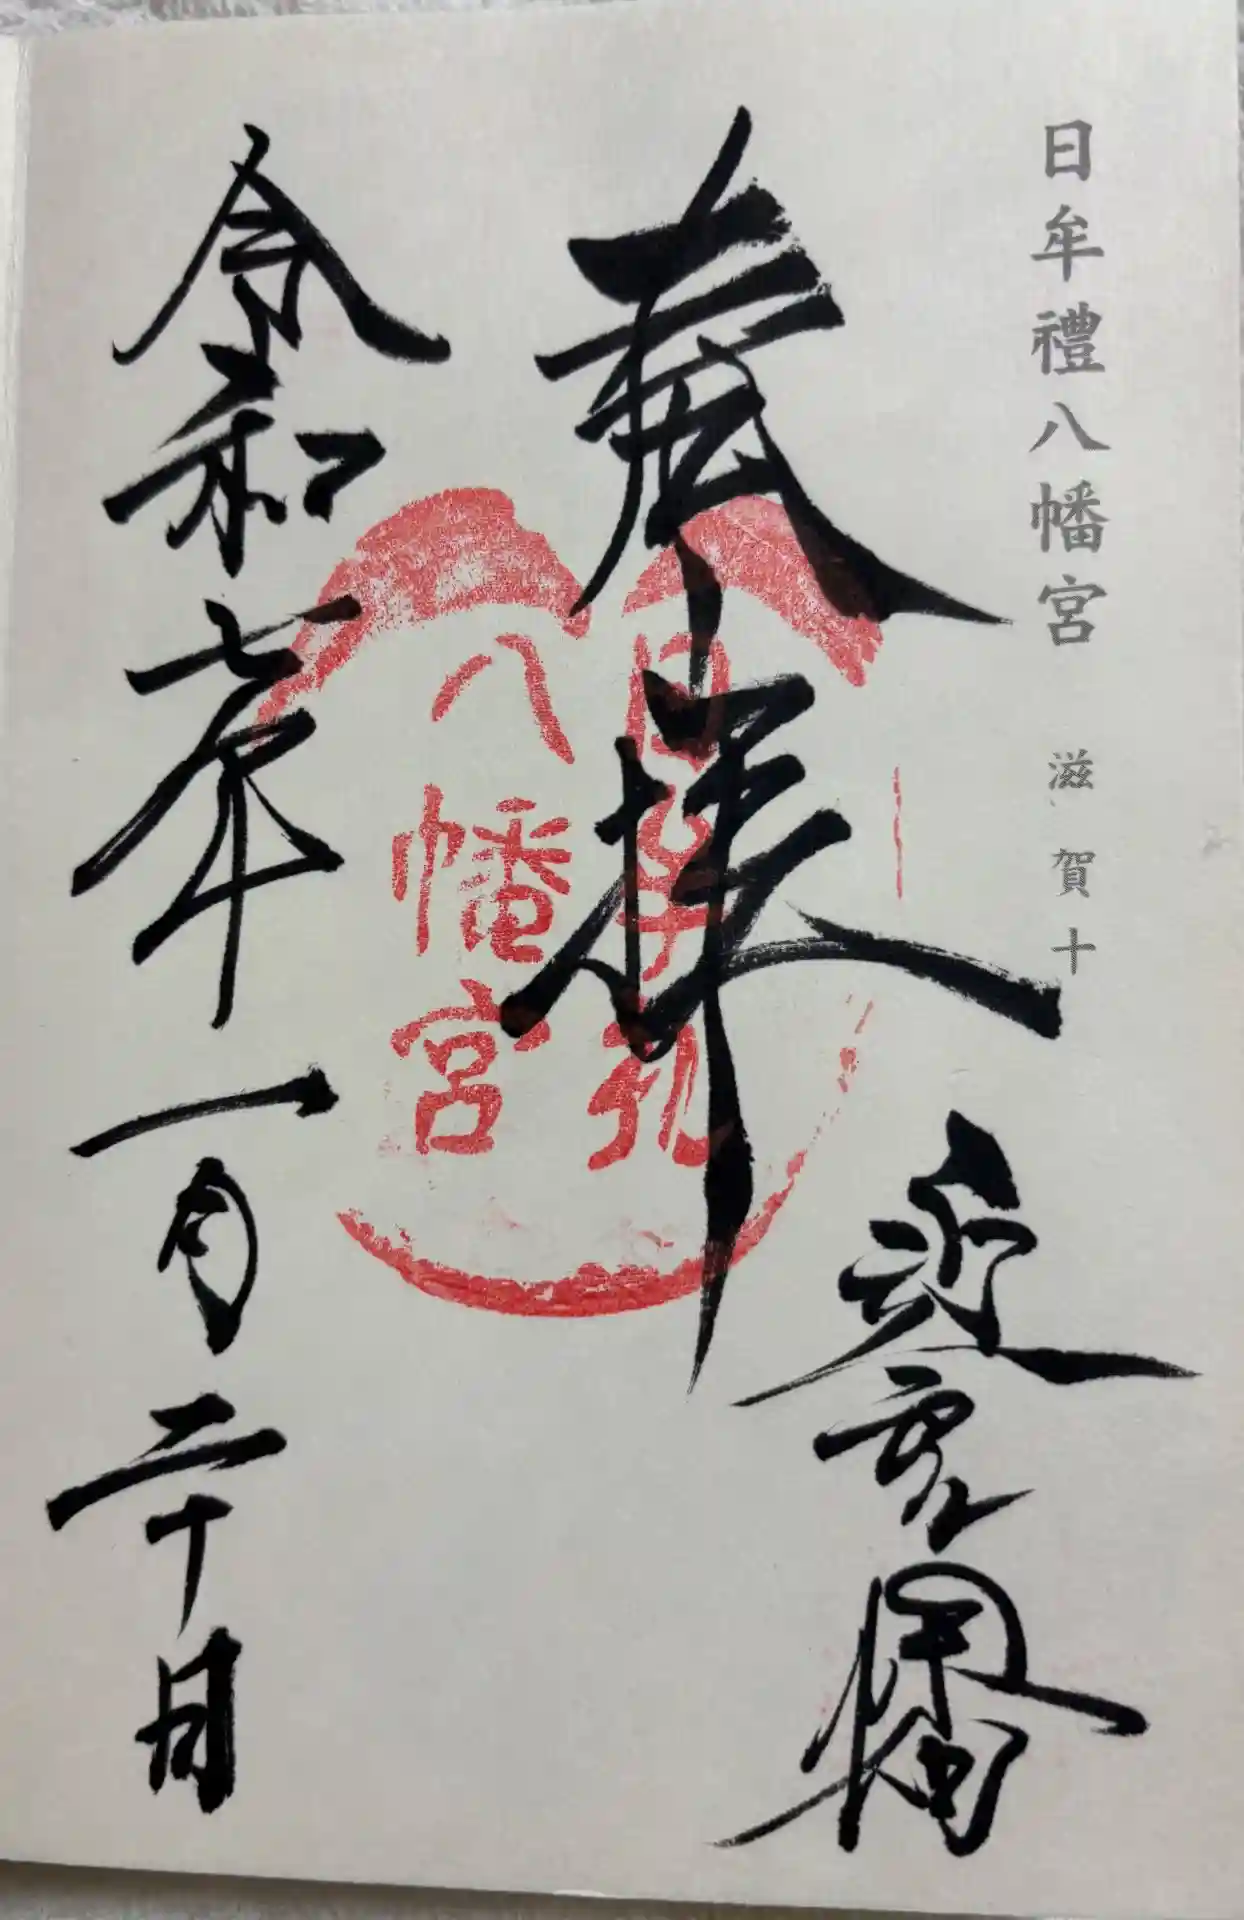 日牟禮八幡宮 滋賀十
奉拝
近江八幡
令和七年一月二十日
日牟礼
八幡宮